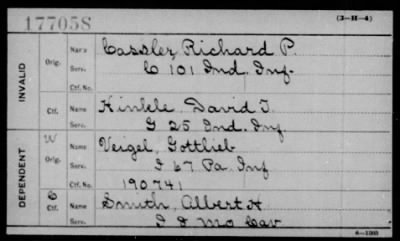 177058
(3-H-4)
INVALID
Orig.
Name Cassler, Richard P.
Serv. C 101 Ind. Inf.
Ctf. No.
Ctf.
Name Hinkle, David T.
Serv. G 25 Ind. Inf
DEPENDENT
W
Orig.
Name Veigel, Gottlieb
Serv. I 67 Pa Inf
Ctf. No. 190741
C
Ctf.
Name Smith, Albert H
Serv. I 8 Mo Cav